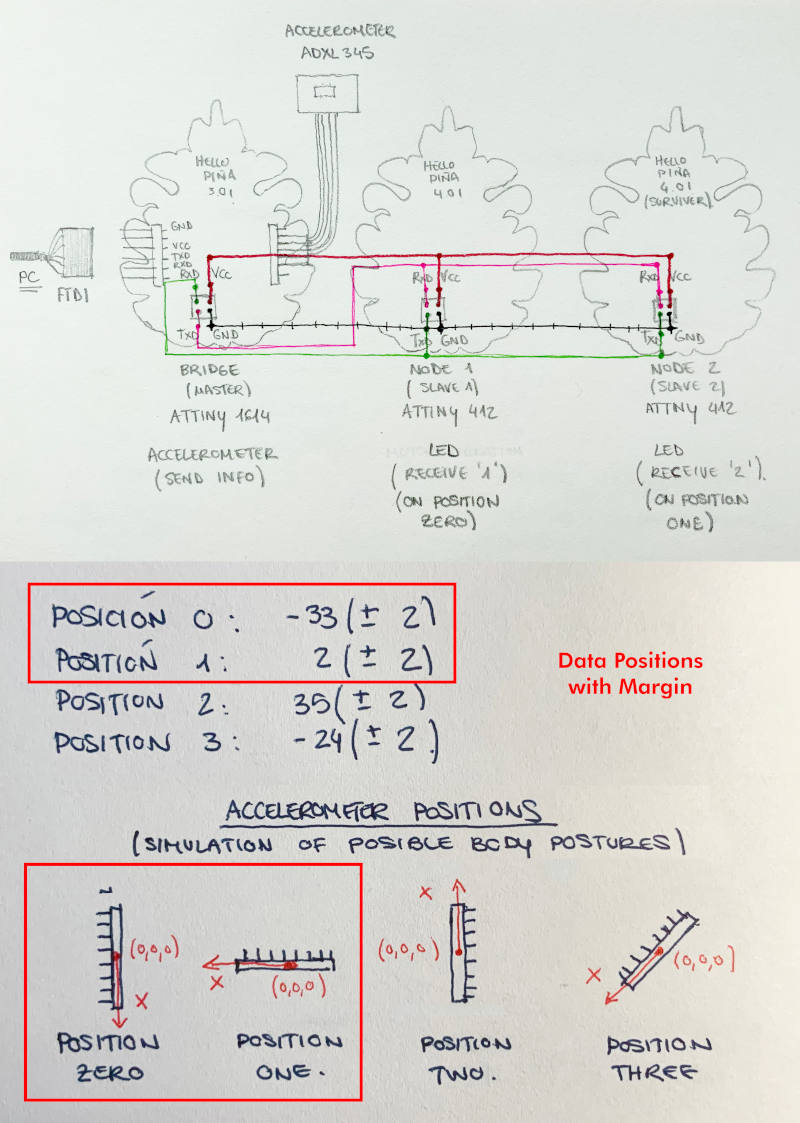 ACCELEROMETER
ADXL345
HELLO
PIÑA
3.01
HELLO
PIÑA
4.01
HELLO
PIÑA
4.01
(SURVIVER)
GND
VCC
TXD
RXD
RXD
VCC
RXD
VCC
RXD
VCC
PC
FTDI
TXD
GND
TXD
GND
TXD
GND
BRIDGE
(MASTER)
ATTINY 1614
ACCELEROMETER
(SEND INFO)
NODE 1
(SLAVE 1)
ATTINY 412
LED
(RECEIVE '1')
(ON POSITION
ZERO)
NODE 2
(SLAVE 2)
ATTINY 412
LED
(RECEIVE '2').
(ON POSITION
ONE)
POSICIÓN 0: -33 (± 2)
POSITIÓN 1: 2 (± 2)
POSITION 2: 35 (± 2)
POSITION 3: -24 (± 2.)
Data Positions
with Margin
ACCELEROMETER POSITIONS
(SIMULATION OF POSIBLE BODY POSTURES)
(0,0,0)
X
POSITION
ZERO
X
(0,0,0)
POSITION
ONE.
X
(0,0,0)
POSITION
TWO.
X
(0,0,0)
POSITION
THREE